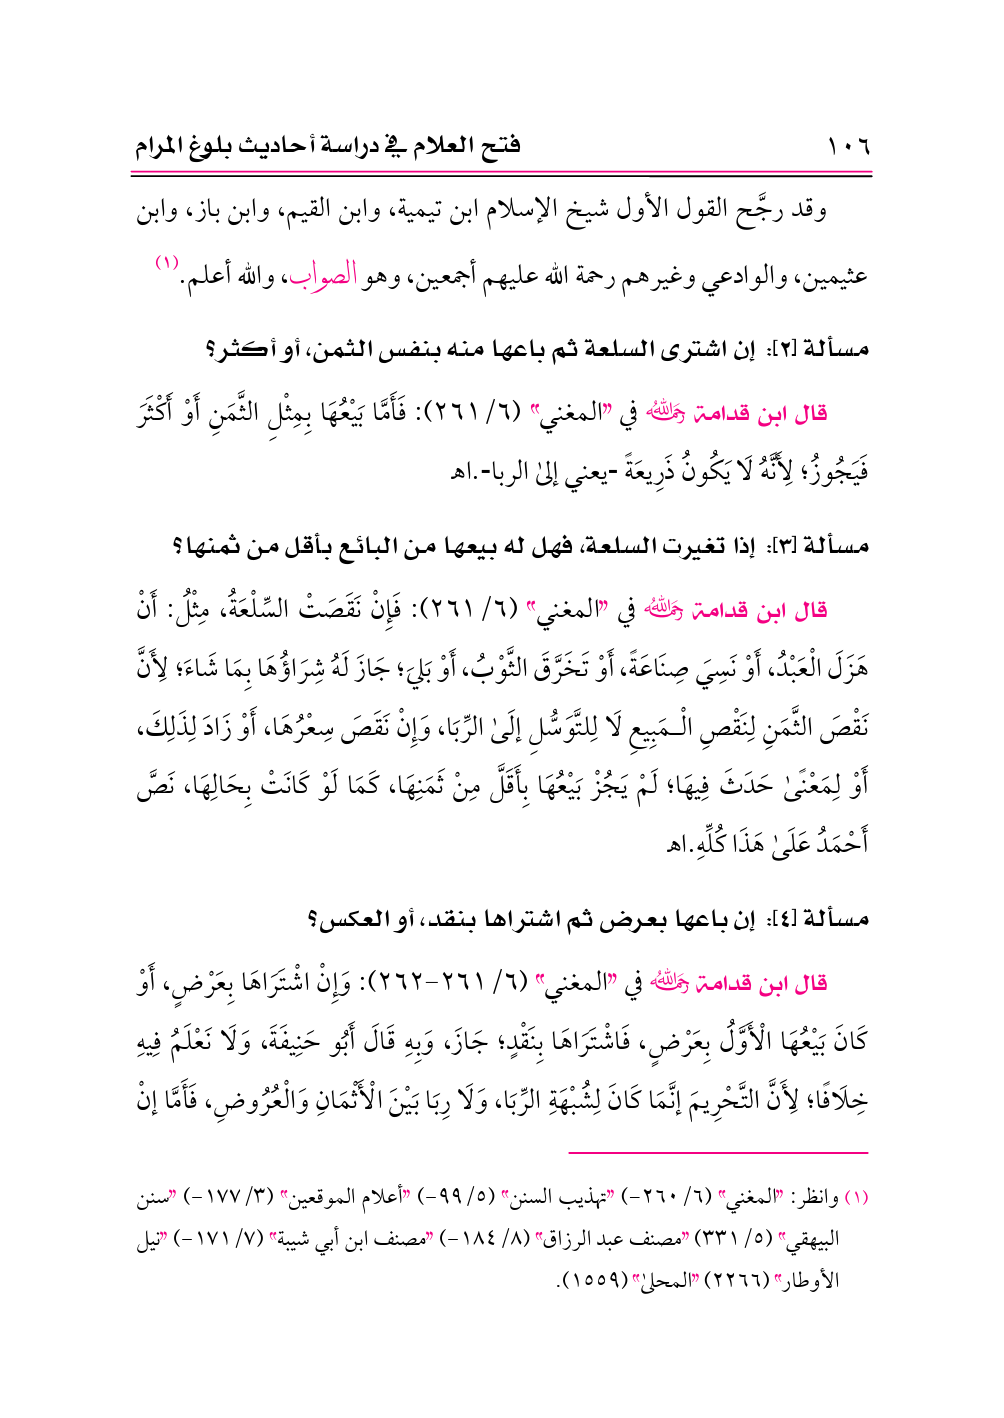 ١٠٦ فتح العلام في دراسة أحاديث بلوغ المرام
وقد رجَّح القول الأول شيخ الإسلام ابن تيمية، وابن القيم، وابن باز، وابن
عثيمين، والوادعي وغيرهم رحمة الله عليهم أجمعين، وهو الصواب، والله أعلم.(١)
مسألة [٢]: إن اشترى السلعة ثم باعها منه بنفس الثمن، أو أكثر؟
قال ابن قدامة رحمه الله في "المغني" (٦/ ٢٦١): فَأَمَّا بَيْعُهَا بِمِثْلِ الثَّمَنِ أَوْ أَكْثَرَ
فَيَجُوزُ؛ لِأَنَّهُ لَا يَكُونُ ذَرِيعَةً -يعني إلىٰ الربا-.اهـ
مسألة [٣]: إذا تغيرت السلعة، فهل له بيعها من البائع بأقل من ثمنها؟
قال ابن قدامة رحمه الله في "المغني" (٦/ ٢٦١): فَإِنْ نَقَصَتْ السِّلْعَةُ، مِثْلُ: أَنْ
هَزَلَ الْعَبْدُ، أَوْ نَسِيَ صِنَاعَةً، أَوْ تَخَرَّقَ الثَّوْبُ، أَوْ بَلِيَ؛ جَازَ لَهُ شِرَاؤُهَا بِمَا شَاءَ؛ لِأَنَّ
نَقْصَ الثَّمَنِ لِنَقْصِ الْـمَبِيعِ لَا لِلتَّوَسُّلِ إلَىٰ الرِّبَا، وَإِنْ نَقَصَ سِعْرُهَا، أَوْ زَادَ لِذَلِكَ،
أَوْ لِمَعْنًىٰ حَدَثَ فِيهَا؛ لَمْ يَجُزْ بَيْعُهَا بِأَقَلَّ مِنْ ثَمَنِهَا، كَمَا لَوْ كَانَتْ بِحَالِهَا، نَصَّ
أَحْمَدُ عَلَىٰ هَذَا كُلِّهِ.اهـ
مسألة [٤]: إن باعها بعرض ثم اشتراها بنقد، أو العكس؟
قال ابن قدامة رحمه الله في "المغني" (٦/ ٢٦١-٢٦٢): وَإِنْ اشْتَرَاهَا بِعَرْضٍ، أَوْ
كَانَ بَيْعُهَا الْأَوَّلُ بِعَرْضٍ، فَاشْتَرَاهَا بِنَقْدٍ؛ جَازَ، وَبِهِ قَالَ أَبُو حَنِيفَةَ، وَلَا نَعْلَمُ فِيهِ
خِلَافًا؛ لِأَنَّ التَّحْرِيمَ إنَّمَا كَانَ لِشُبْهَةِ الرِّبَا، وَلَا رِبَا بَيْنَ الْأَثْمَانِ وَالْعُرُوضِ، فَأَمَّا إنْ
(١) وانظر: "المغني" (٦/ ٢٦٠-) "تهذيب السنن" (٥/ ٩٩-) "أعلام الموقعين" (٣/ ١٧٧-) "سنن
البيهقي" (٥/ ٣٣١) "مصنف عبد الرزاق" (٨/ ١٨٤-) "مصنف ابن أبي شيبة" (٧/ ١٧١-) "نيل
الأوطار" (٢٢٦٦) "المحلىٰ" (١٥٥٩).